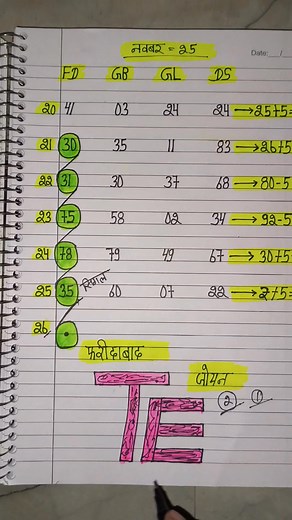 नवंबर = 25
Date: __/
FD GB GL DS
20 41 03 24 24 → 25+5=
21 30 35 11 83 → 26+5
22 31 30 37 68 → 80-5
23 75 58 02 34 → 92-5
24 78 79 49 67 → 30+5
25 35 60 07 22 → 2+5=
26
फरीदाबाद
जोमन
② ①
TE